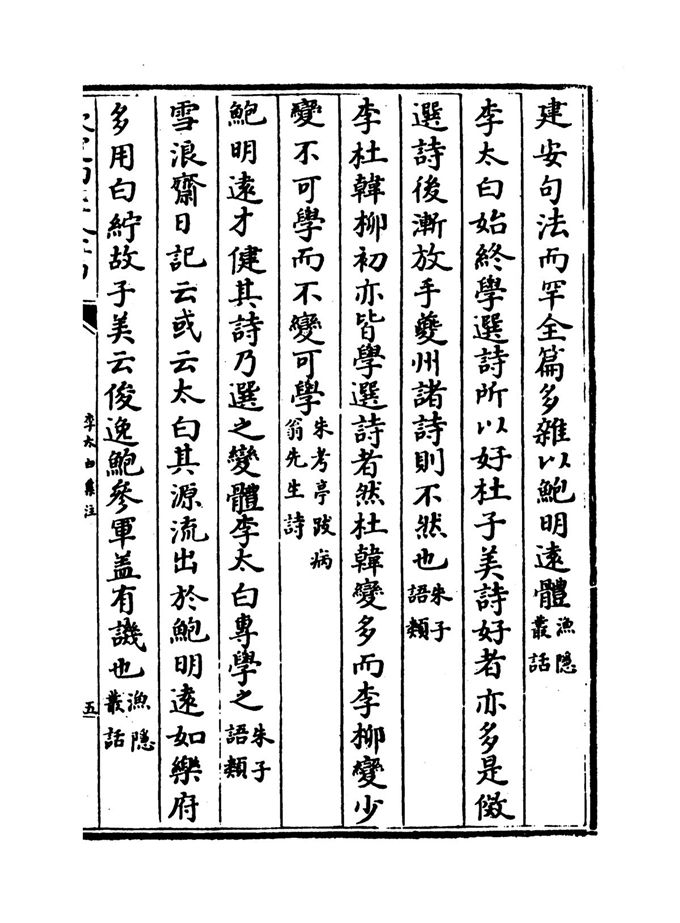 建安句法而罕全篇多雜以鮑明遠體漁隱叢話
李太白始終學選詩所以好杜子美詩好者亦多是傚
選詩後漸放手夔州諸詩則不然也朱子語類
李杜韓柳初亦皆學選詩者然杜韓變多而李柳變少
變不可學而不變可學朱考亭跋病翁先生詩
鮑明遠才健其詩乃選之變體李太白專學之朱子語類
雪浪齋日記云或云太白其源流出於鮑明遠如樂府
多用白紵故子美云俊逸鮑參軍蓋有譏也漁隱叢話
李太白集注
五